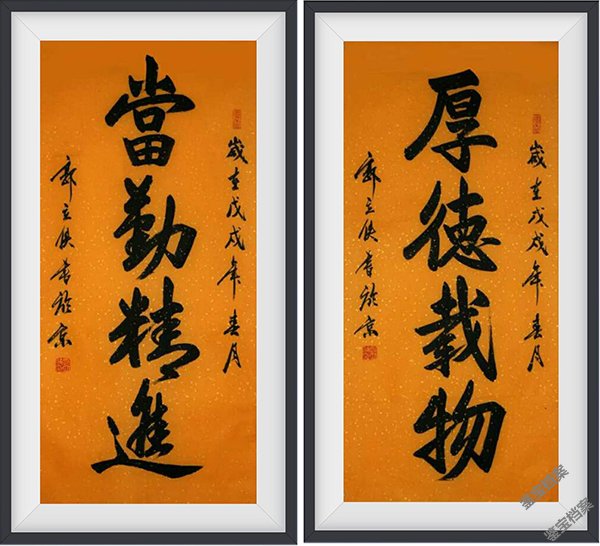 歲在戊戌年春月
當勤精進
郭立俠書於京
歲在戊戌年春月
厚德載物
郭立俠書於京
鉴宝档案
鉴宝档案